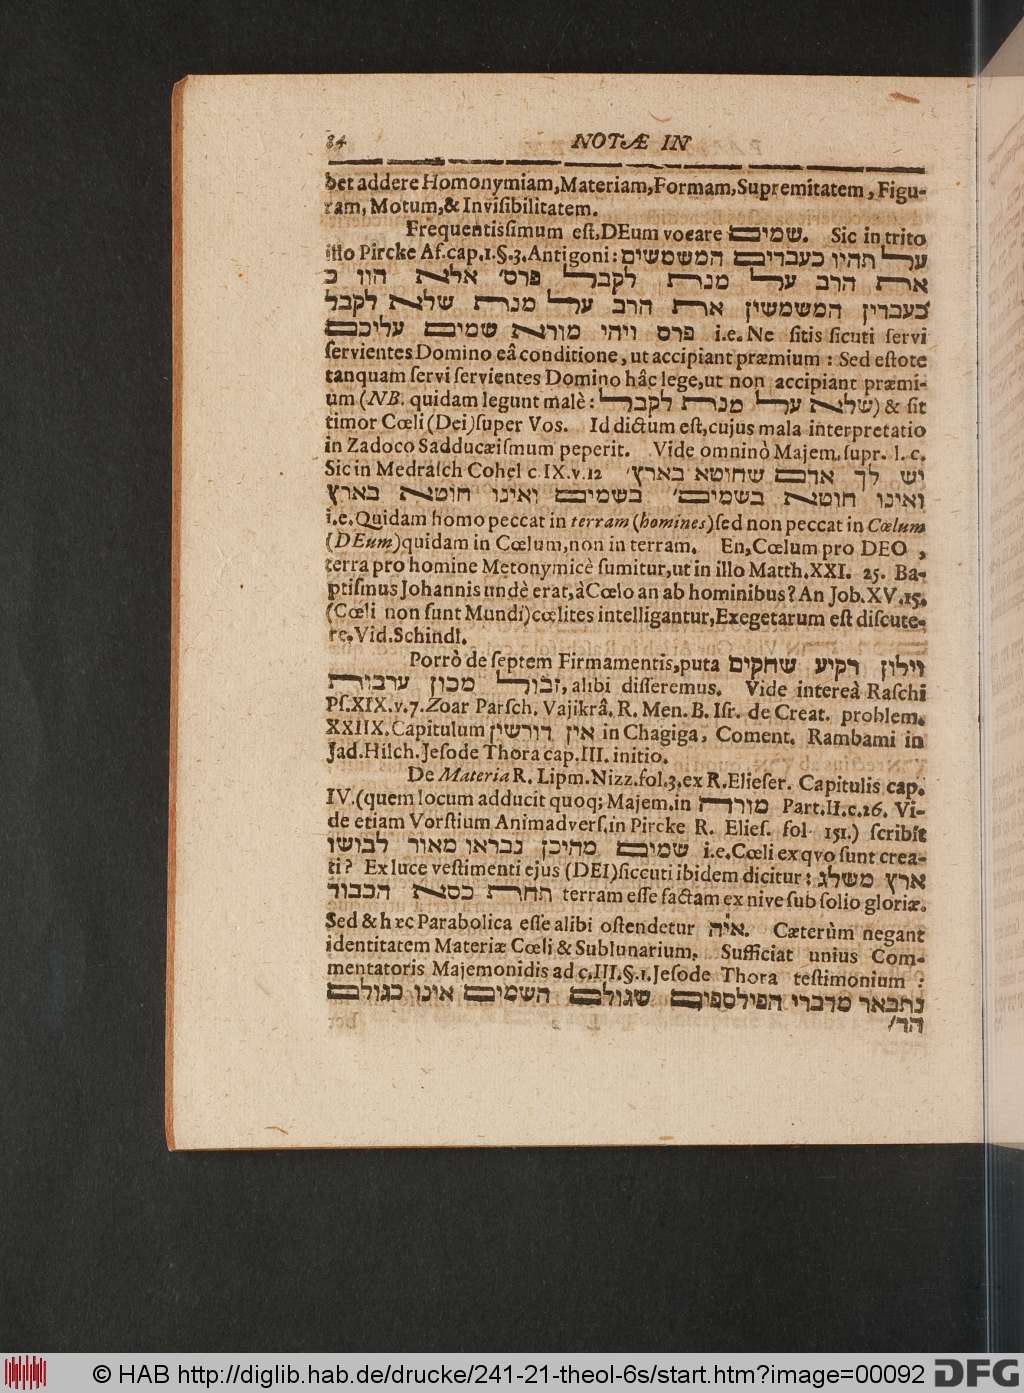 84 NOTÆ IN
bet addere Homonymiam,Materiam,Formam,Supremitatem, Figu-
ram, Motum,& Inviſibilitatem.
Frequentisſimum eſt,DEum vocare שמים. Sic in trito
illo Pircke Af.cap.1.§.3.Antigoni: על תהיו כעבדים המשמשים
את הרב על מנת לקבל פרס׳ אלא הוו כ
כעבדין המשמשין את הרב על מנת שלא לקבל
פרס ויהי מורא שמים עליכם i.e. Ne ſitis ſicuti ſervi
ſervientes Domino eâ conditione, ut accipiant præmium : Sed eſtote
tanquam ſervi ſervientes Domino hâc lege,ut non accipiant præmi-
um (NB. quidam legunt malè: שלא על מנת לקבל) & ſit
timor Cœli (Dei) ſuper Vos. Id dictum eſt,cujus mala interpretatio
in Zadoco Sadducæiſmum peperit. Vide omninò Majem. ſupr. l. c.
Sic in Medraſch Cohel c.IX.v.12 יש לך אדם שחוטא בארץ׳
ואינו חוטא בשמים׳ בשמים ואינו חוטא בארץ
i.e.Quidam homo peccat in terram (homines) ſed non peccat in Cœlum
(DEum) quidam in Cœlum,non in terram. En, Cœlum pro DEO ,
terra pro homine Metonymicè ſumitur,ut in illo Matth.XXI. 25. Ba-
ptiſmus Johannis undè erat, à Cœlo an ab hominibus? An Job.XV.15.
(Cœli non ſunt Mundi) cœlites intelligantur, Exegetarum eſt diſcute-
re. Vid.Schindl.
Porrò de ſeptem Firmamentis,puta וילון רקיע שחקים
זבול מכון ערבות, alibi diſſeremus. Vide intereà Raſchi
Pſ.XIX.v.7.Zoar Parſch. Vajikrâ. R. Men. B. Iſr. de Creat. problem.
XXIIX.Capitulum אין דורשין in Chagiga, Coment. Rambami in
Jad.Hilch.Jeſode Thora cap.III. initio.
De Materia R. Lipm.Nizz.fol.3.ex R.Elieſer. Capitulis cap.
IV.(quem locum adducit quoq; Majem.in מורה Part.II.c.26. Vi-
de etiam Vorſtium Animadverſ.in Pircke R. Elieſ. fol. 151.) ſcribit
שמים מהיכן נבראו מאור לבושו i.e.Cœli ex qvo ſunt crea-
ti? Ex luce veſtimenti ejus (DEI) ſiccuti ibidem dicitur: ארץ משלג
תחת כסא הכבוד terram eſſe factam ex nive ſub ſolio gloriæ.
Sed & hæc Parabolica eſſe alibi oſtendetur אי״ה. Cæterùm negant
identitatem Materiæ Cœli & Sublunarium. Sufficiat unius Com-
mentatoris Majemonidis ad c.III.§.1.Jeſode Thora teſtimonium :
נתבאר מדברי הפילספים שגולם השמים אינו כגולם
הד׳
© HAB http://diglib.hab.de/drucke/241-21-theol-6s/start.htm?image=00092
DFG